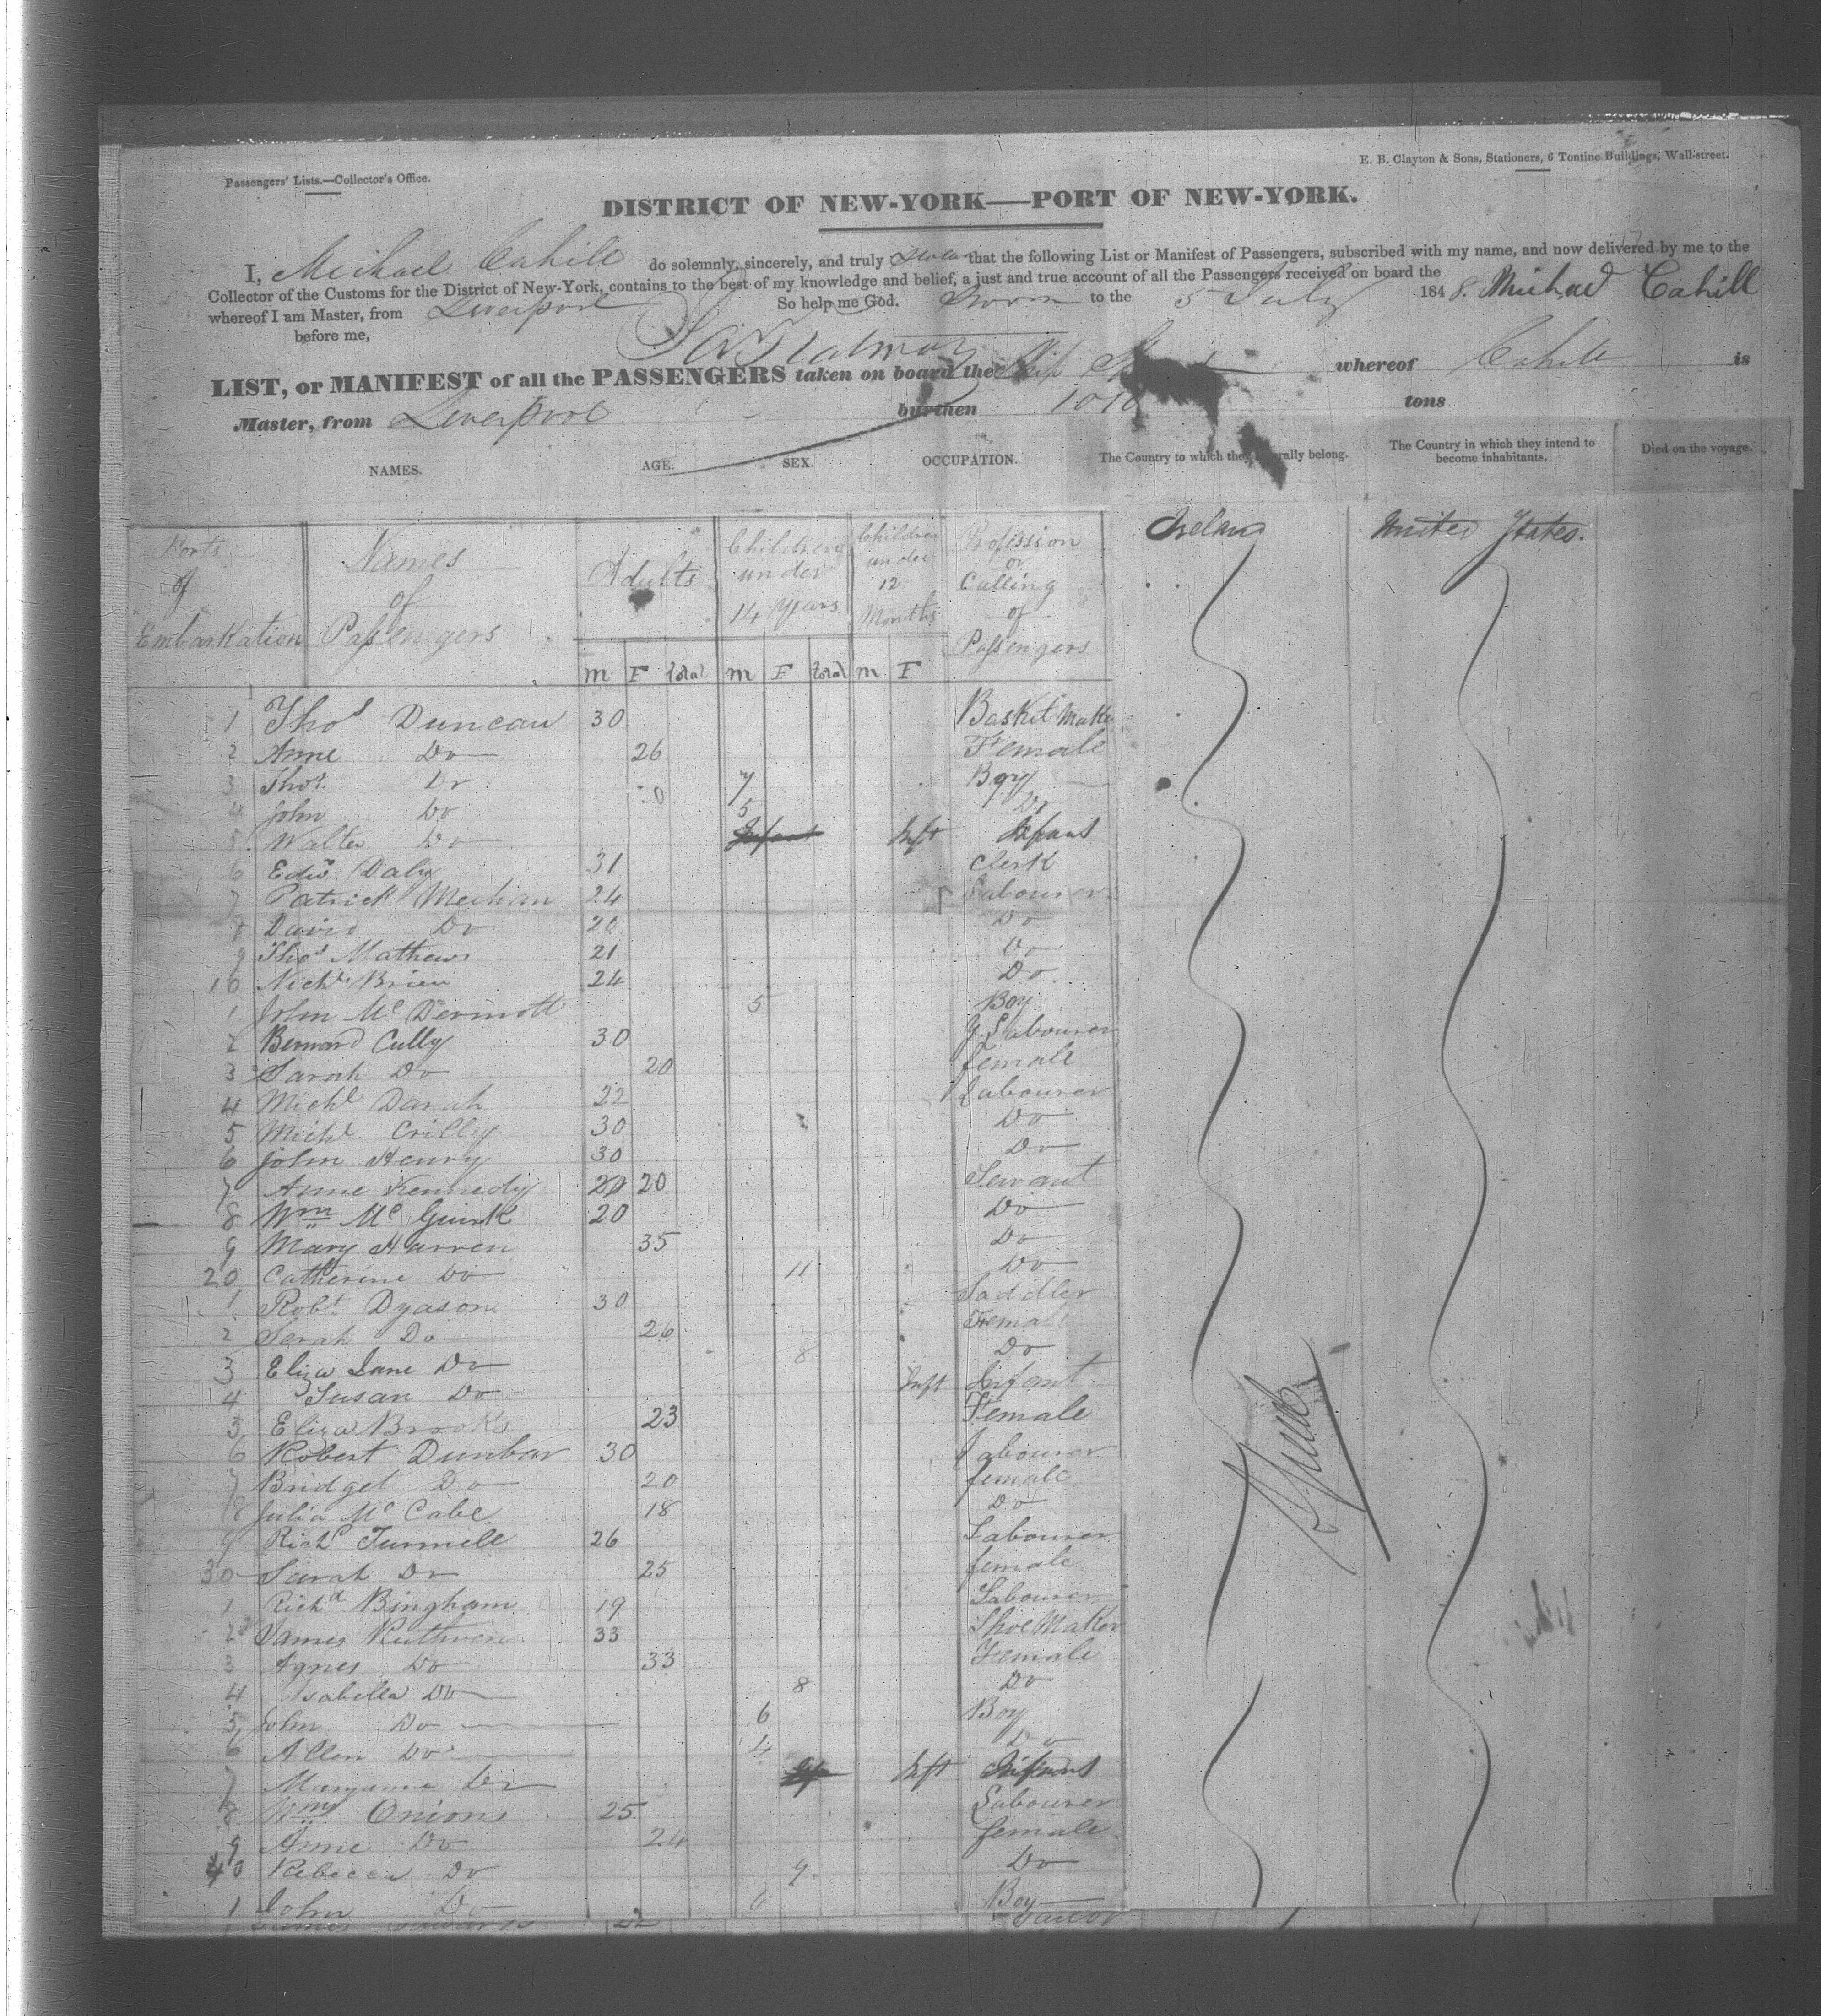 Passengers' Lists.—Collector's Office.
E. B. Clayton & Sons, Stationers, 6 Tontine Buildings, Wall-street.
DISTRICT OF NEW-YORK—PORT OF NEW-YORK.
I, Michael Cahill do solemnly, sincerely, and truly swear that the following List or Manifest of Passengers, subscribed with my name, and now delivered by me to the
Collector of the Customs for the District of New-York, contains to the best of my knowledge and belief, a just and true account of all the Passengers received on board the
whereof I am Master, from Liverpool So help me God. Sworn to the 5 July 1848. Michael Cahill
before me,
LIST, or MANIFEST of all the PASSENGERS taken on board the Ship whereof Cahill is
Master, from Liverpool burthen 1010 tons
NAMES. AGE. SEX. OCCUPATION. The Country to which they severally belong. The Country in which they intend to become inhabitants. Died on the voyage.
Ports of Embarkation Names of Passengers Adults Children under 14 Years Children under 12 Months Profission or Calling of Passengers Ireland United States.
M F total M F total M F
1 Thos Duncan 30 Basket Maker
2 Anne Do 26 Female
3 Thos. Do 7 Boy
4 John Do 5 Do
5 Walter Do Infant Inft Infant
6 Edwd Daly 31 Clerk
7 Patrick Meehan 24 Labourer
8 David Do 20 Do
9 Thos Mathews 21 Do
10 Nichs Brien 24 Do
1 John Mc Dermott 5 Boy
2 Bernard Cully 30 Labourer
3 Sarah Do 20 female
4 Michl Darah 22 Labourer
5 Michl Crilly 30 Do
6 John Henry 30 Do
7 Anne Kennedy 20 20 Servant
8 Wm Mc Guirk 20 Do
9 Mary Harren 35 Do
20 Catherine Do 11 Do
1 Robt Dyason 30 Saddler
2 Serah Do 26 Female
3 Eliza Jane Do 8 Do
4 Susan Do Inft Infant
5 Eliza Brooks 23 Female
6 Robert Dunbar 30 Labourer
7 Bridget Do 20 female
8 Julia Mc Cabe 18 Do
9 Richd Tunnell 26 Labourer
30 Sarah Do 25 female
1 Richd Bingham 19 Labourer
2 James Ruthven 33 Shoe Maker
3 Agnes Do 33 Female
4 Isabella Do 8 Do
5 John Do 6 Boy
6 Allen Do 4 Do
7 Maryanne Do Inft Infant
8 Wm Onions 25 Labourer
9 Anne Do 24 female
40 Rebecca Do 9 Do
1 John Do 6 Boy